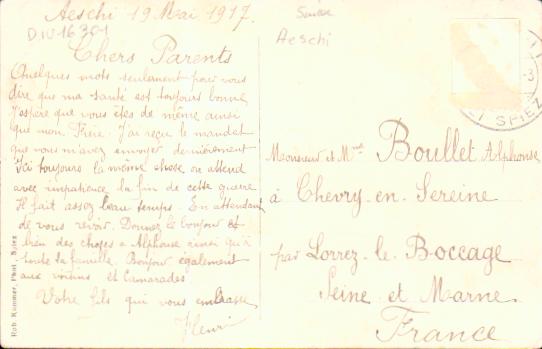 Aeschi 19 Mai 1917.
DIV16301
Suisse
Aeschi
Chers Parents
Quelques mots seulement pour vous
dire que ma santé est toujours bonne
J'espère que vous êtes de même ainsi
que mon Frère. J'ai reçu le mandat
que vous m'avez envoyer dernièrement
Ici toujours la même chose on attend
avec impatience la fin de cette guerre
Il fait assez beau temps. En attendant
de vous revoir. Donnez le bonjour et
bien des choses a Alphonse ainsi qu'à
toute la famille. Bonjour également
aux voisins et Camarades
Votre fils qui vous embrasse
Henri
Monsieur et Mme Boullet Alphonse
à Chevry-en-Sereine
par Lorrez-le-Boccage
Seine et Marne.
France
SPIEZ
Rob. Kummer, Phot., Spiez